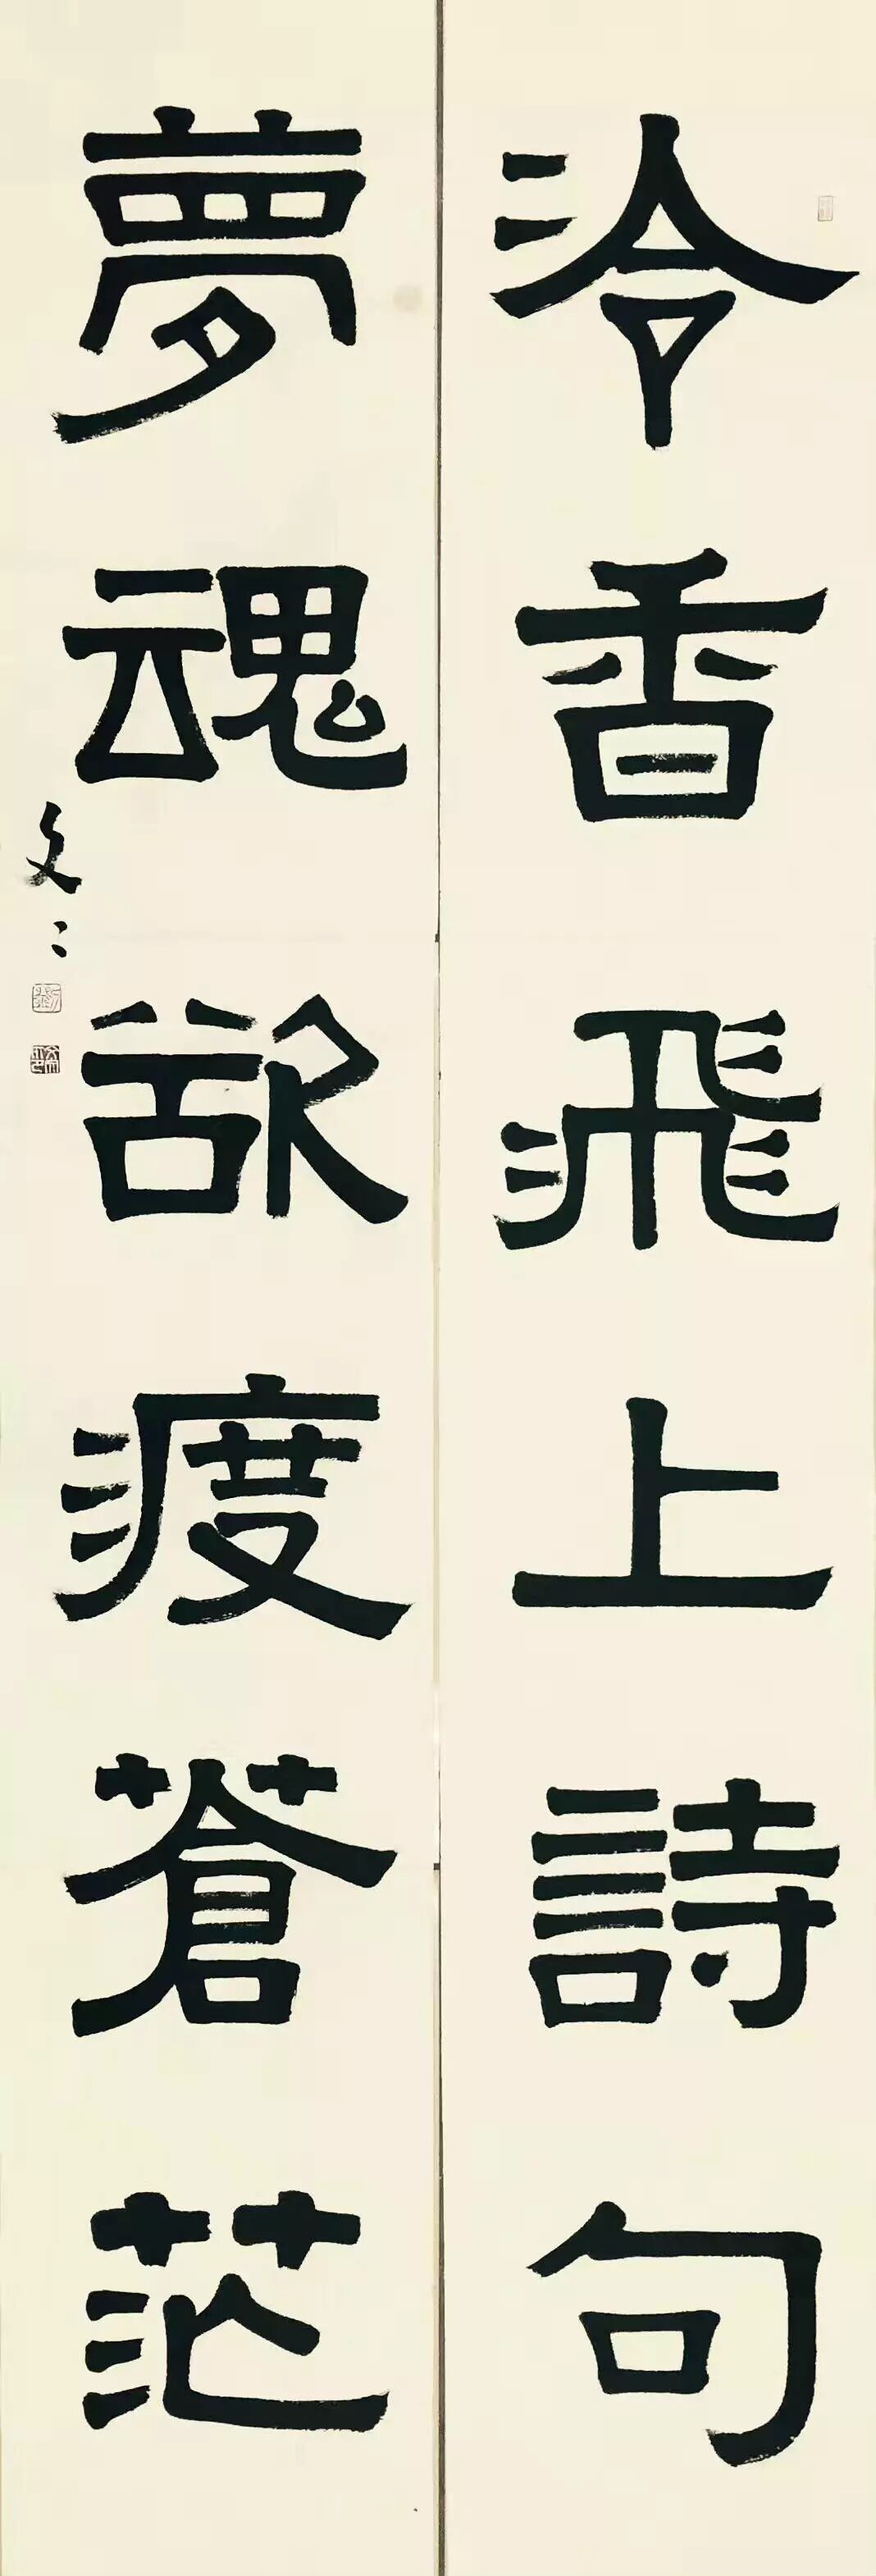 冷香飛上詩句
夢魂欲渡蒼茫
文二